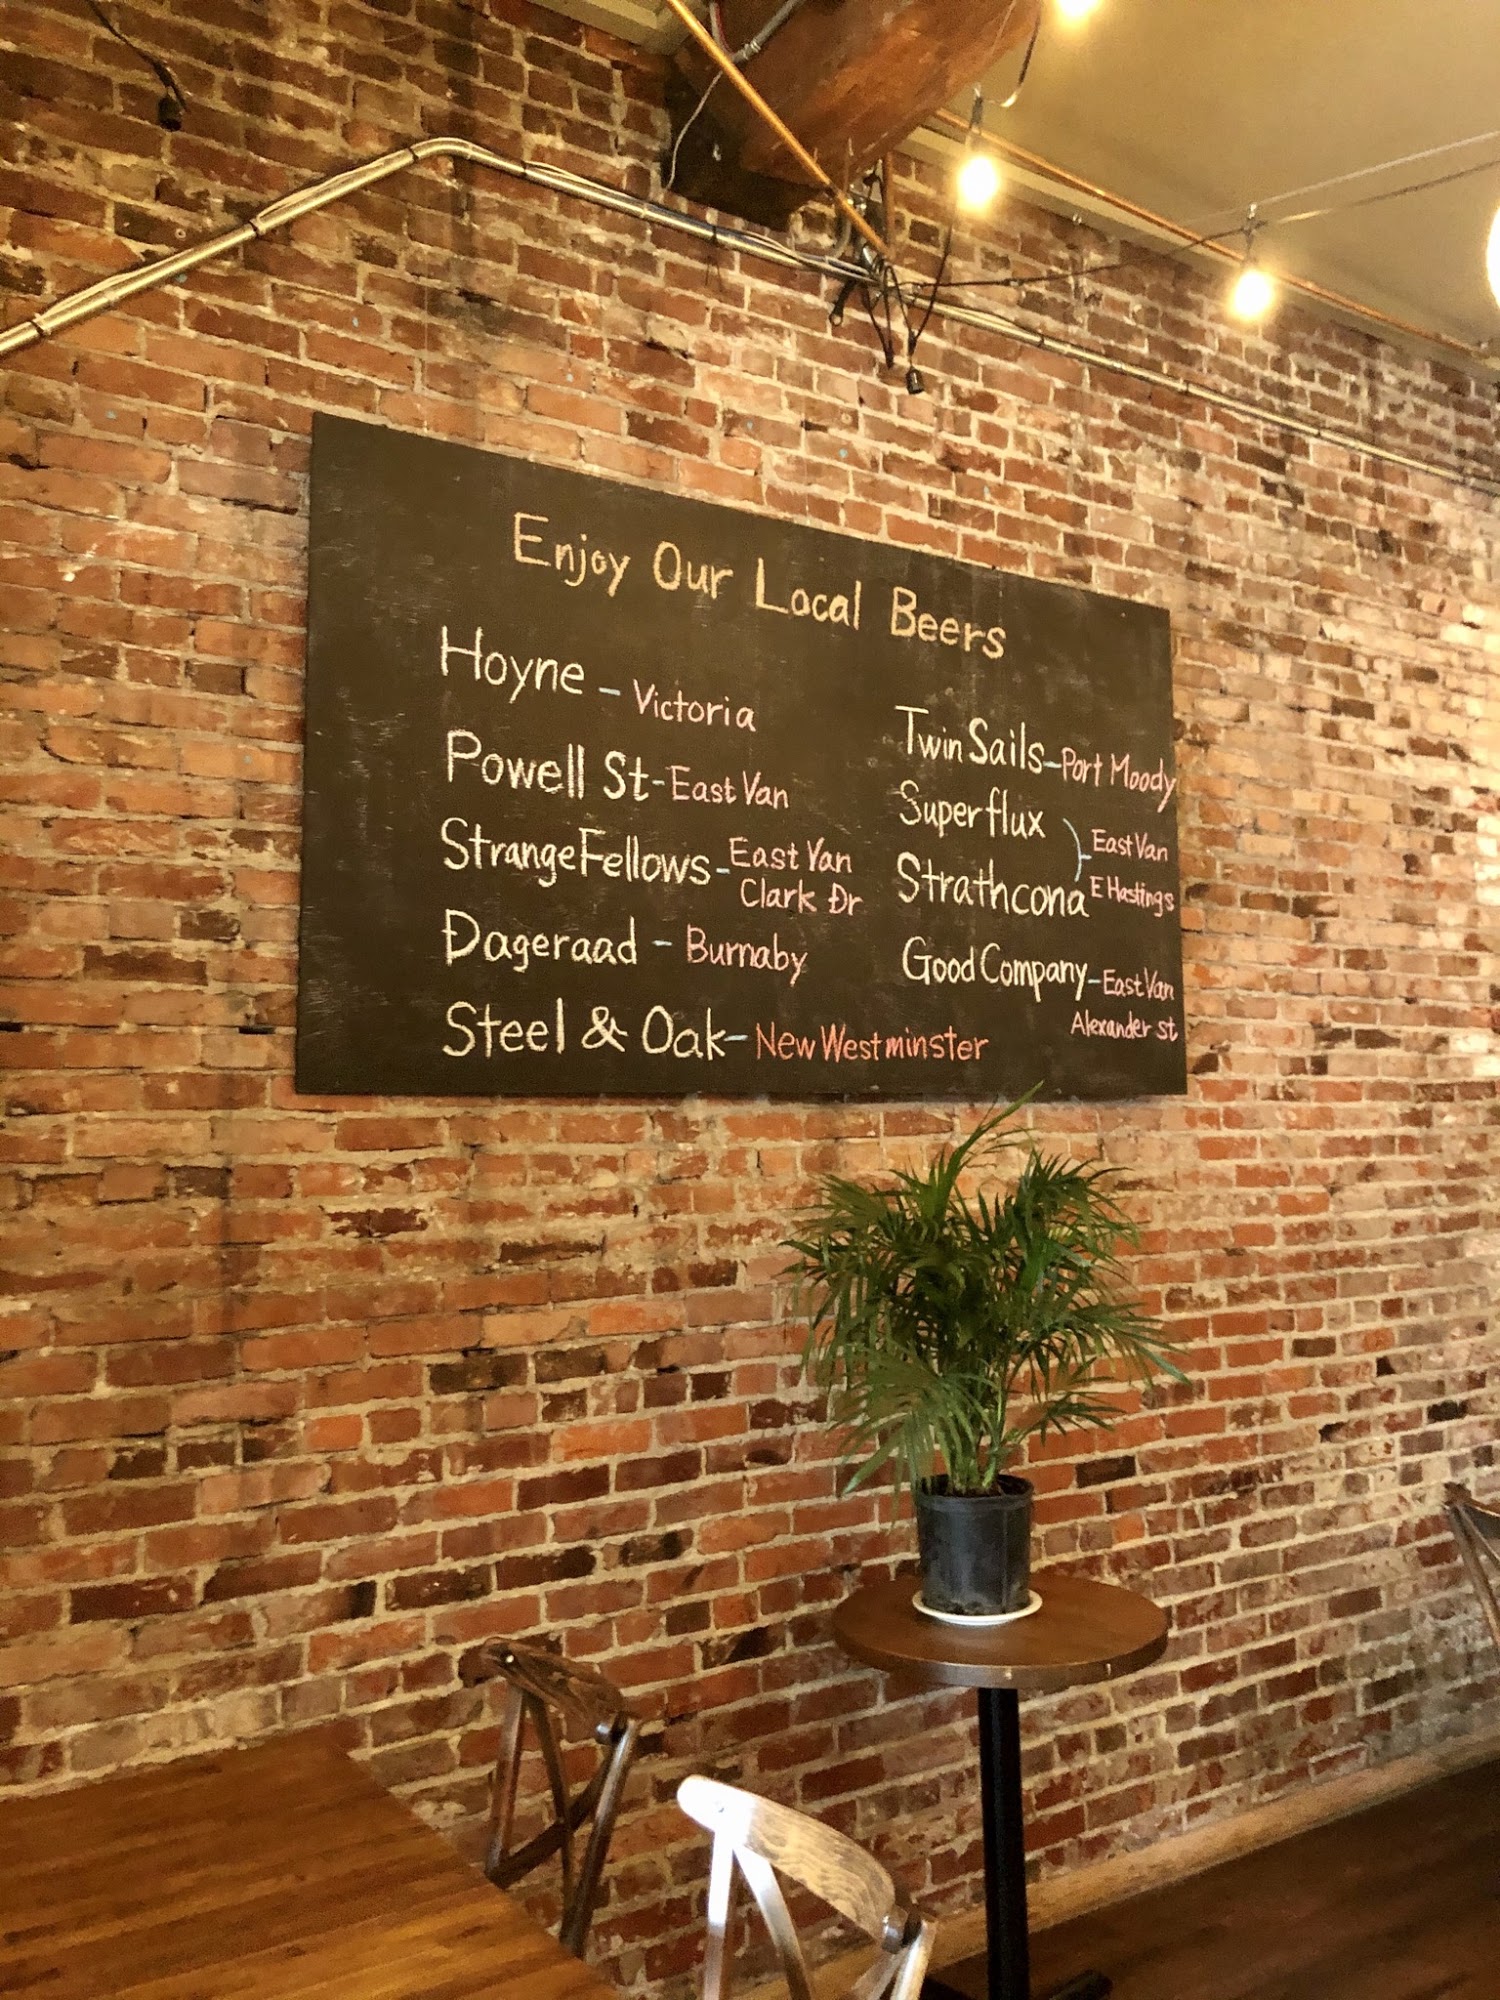 Enjoy Our Local Beers
Hoyne - Victoria
Powell St - East Van
Strange Fellows - East Van
Clark Dr
Dageraad - Burnaby
Steel & Oak - New Westminster
Twin Sails - Port Moody
Superflux
East Van
Strathcona
E Hastings
Good Company - East Van
Alexander St